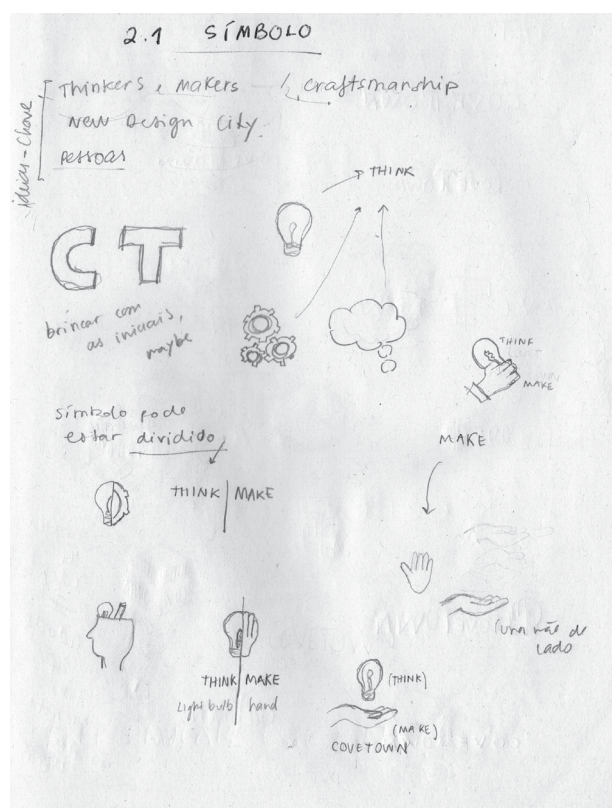 2.1 SÍMBOLO
ideias-chave
Thinkers e makers craftsmanship
New Design City
pessoas
THINK
CT
brincar com
as iniciais,
maybe
THINK
MAKE
símbolo pode
estar dividido
MAKE
THINK | MAKE
(uma mão de
lado
THINK | MAKE
Light bulb | hand
(THINK)
(MAKE)
COVETOWN